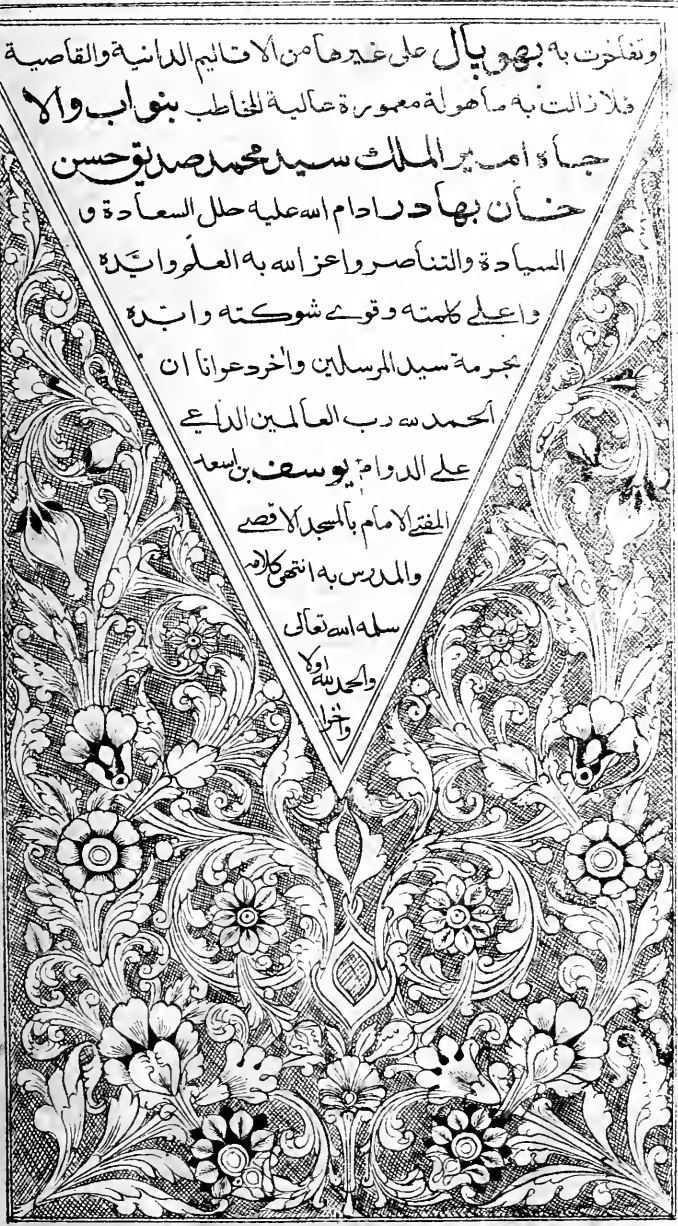 وتفاخرت به بهوپال على غيرها من الاقاليم الدانية والقاصية
فلا زالت به ماهولة معمورة عالية المخاطب بنواب والا
جاه امير الملك سيد محمد صديق حسن
خان بهادر ادام الله عليه حلل السعادة و
السيادة والتناصر واعز الله به العلم وايَّده
واعلى كلمته وقوے شوكته وابّده
بحرمة سيد المرسلين واخر دعوانا ان
الحمد لله رب العالمين الداعے
على الدوام يوسف بن اسعد
المفتے الامام بالمسجد الاقصے
والمدرس به انتهى كلامه
سلمه الله تعالى
والحمد لله اولا
واخرا